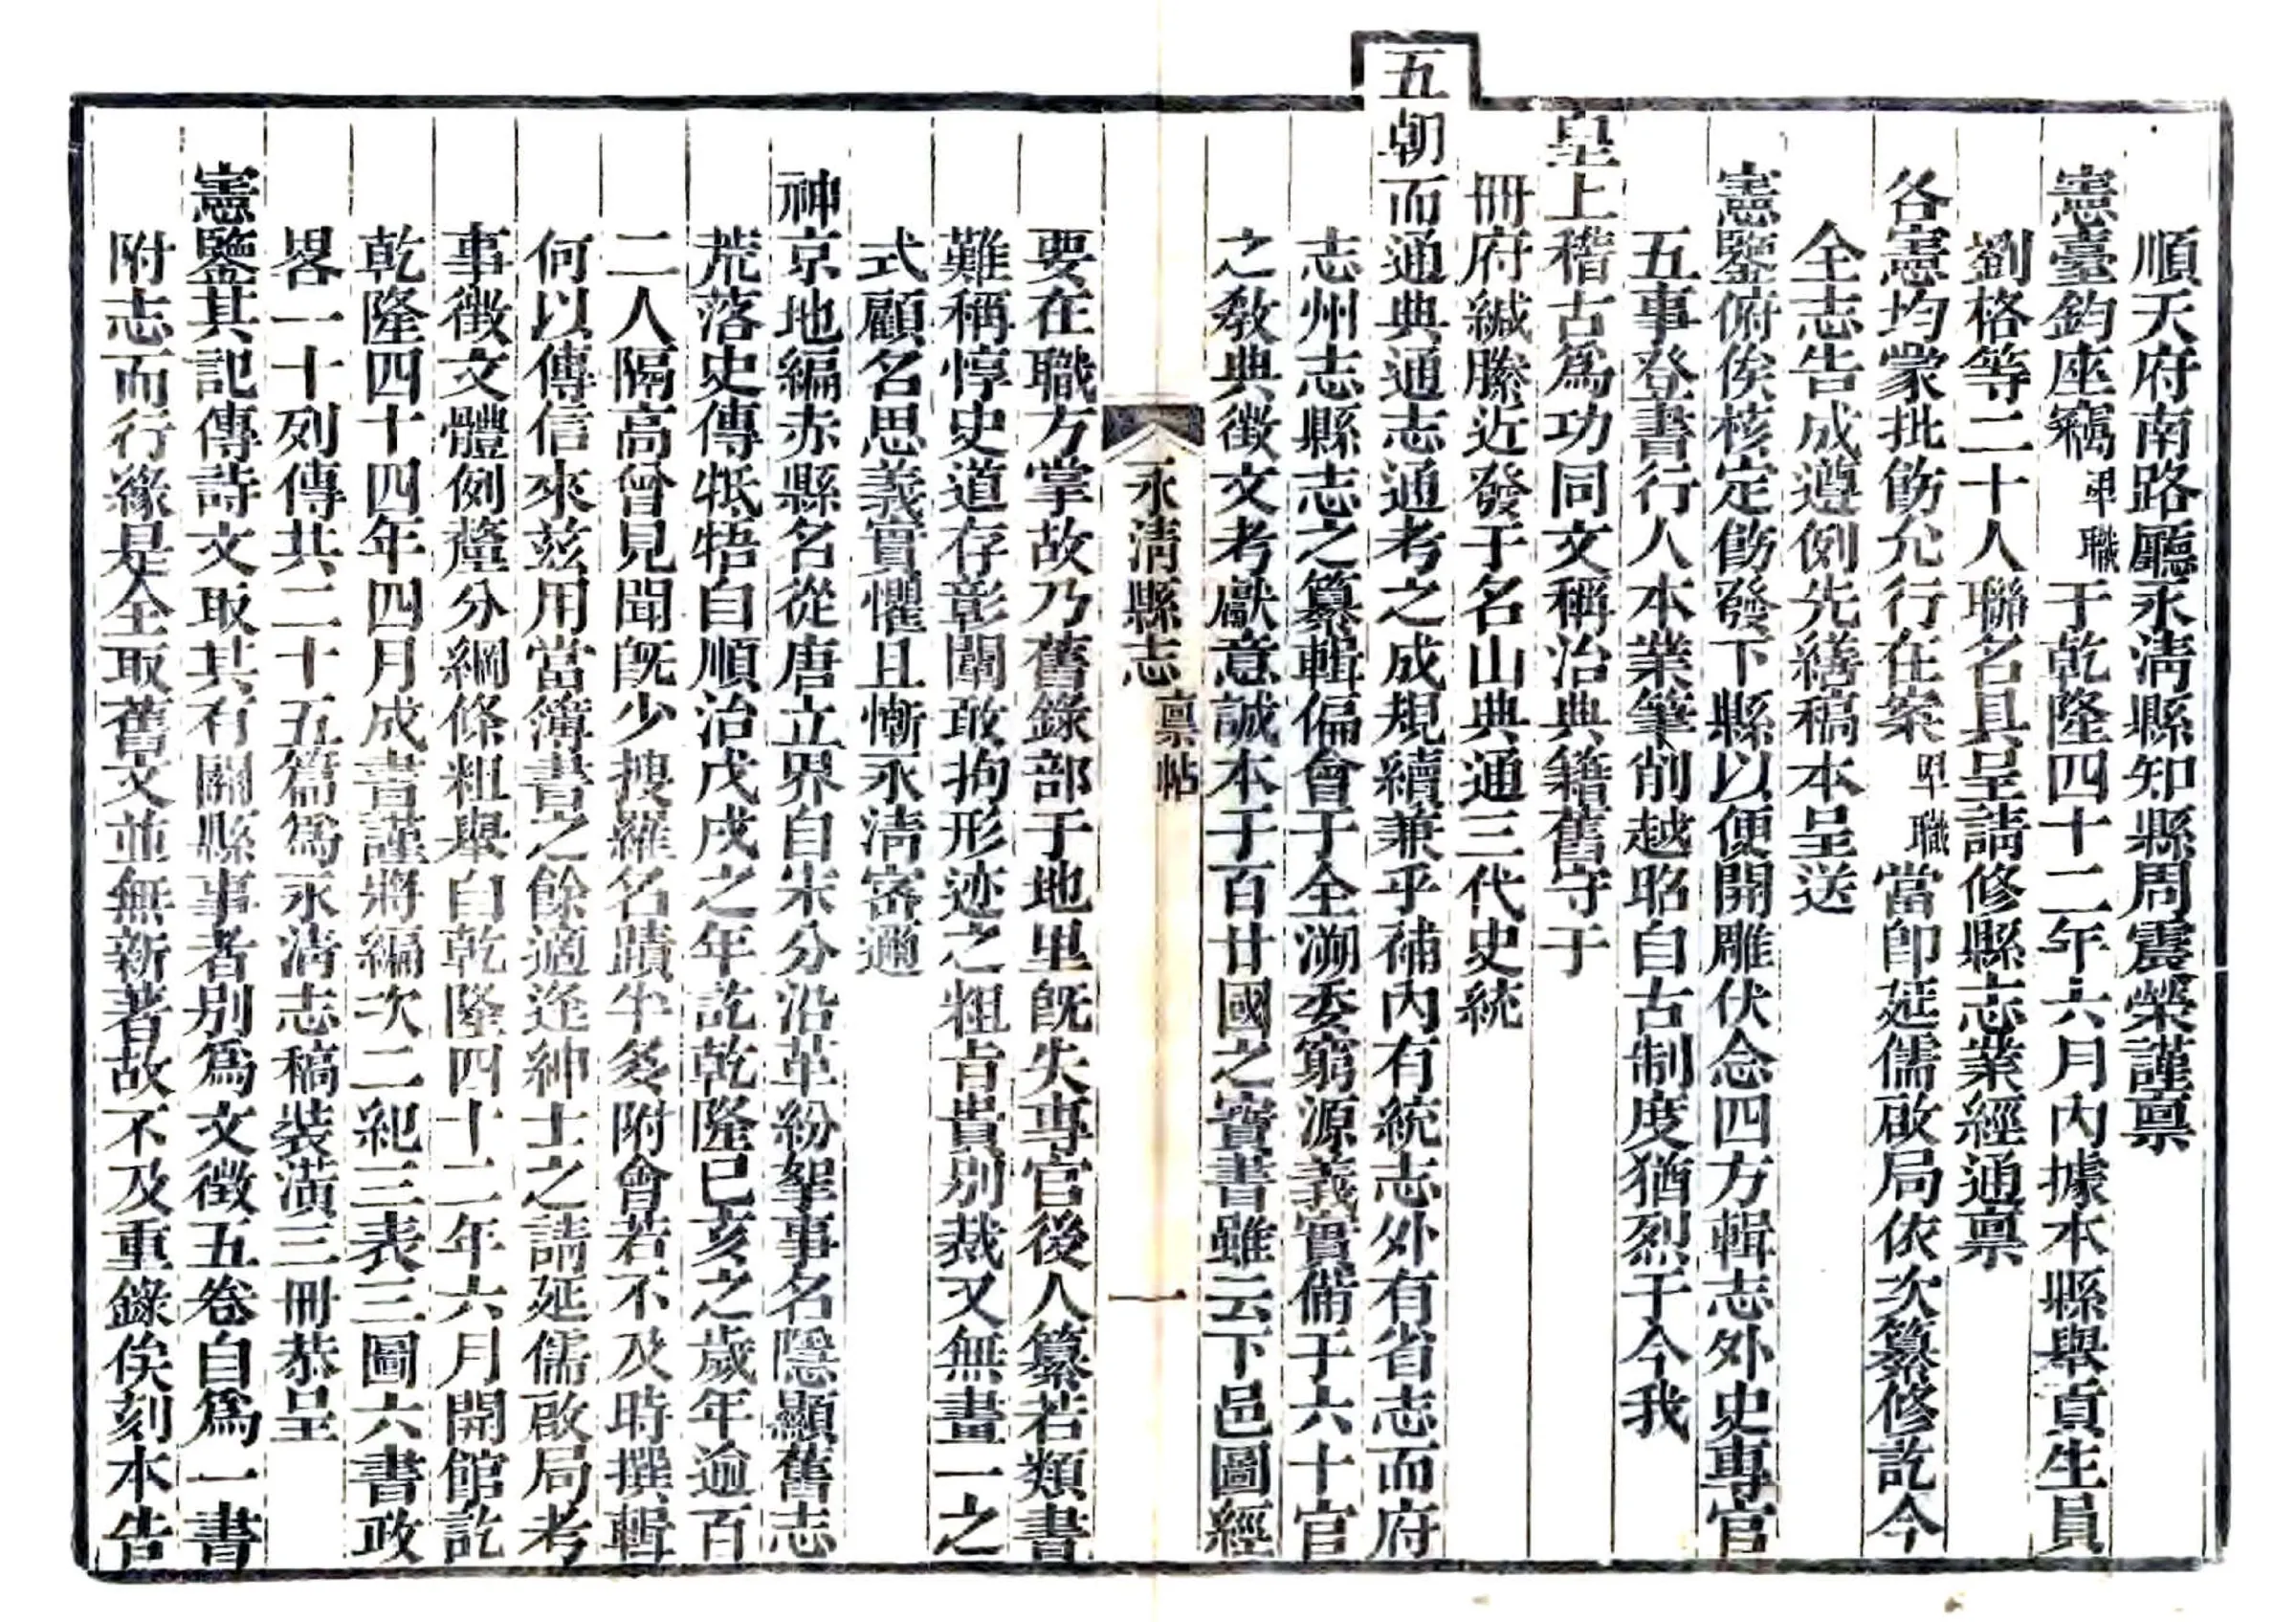 順天府南路廳永淸縣知縣周震榮謹禀
憲臺鈞座竊卑職于乾隆四十二年六月內據本縣舉貢生員
劉格等二十人聯名具呈請修縣志業經通禀
各憲均蒙批飭允行在案卑職當卽延儒啟局依次纂修訖今
全志告成遵例先繕稿本呈送
憲鑒俯俟核定飭發下縣以便開雕伏念四方輯志外史專官
五事登書行人本業筆削越昭自古制度猶烈于今我
皇上稽古爲功同文稱治典籍舊守于
冊府緘縢近發于名山典通三代史統
五朝而通典通志通考之成規續兼乎補內有統志外有省志而府
志州志縣志之纂輯偏會于全溯委窮源義實備于六十官
之敎典徵文考獻意誠本于百廿國之寶書雖云下邑圖經
永淸縣志 禀帖 一
要在職方掌故乃舊錄部于地里旣失專官後人纂若類書
難稱惇史道存彰闡敢拘形迹之粗旨貴別裁又無畫一之
式顧名思義實懼且慚永淸密邇
神京地編赤縣名從唐立界自宋分沿革紛挐事名隱顯舊志
荒落史傳牴牾自順治戊戌之年訖乾隆已亥之歲年逾百
二人隔高曾見聞旣少搜羅名蹟半多附會若不及時撰輯
何以傳信來兹用當簿書之餘適逢紳士之請延儒啟局考
事徵文體例釐分綱條粗舉自乾隆四十二年六月開館訖
乾隆四十四年四月成書謹將編次二紀三表三圖六書政
畧一十列傳共二十五篇爲永淸志稿裝潢三冊恭呈
憲鑒其記傳詩文取其有關縣事者別爲文徵五卷自爲一書
附志而行緣是全取舊文並無新著故不及重錄俟刻本告